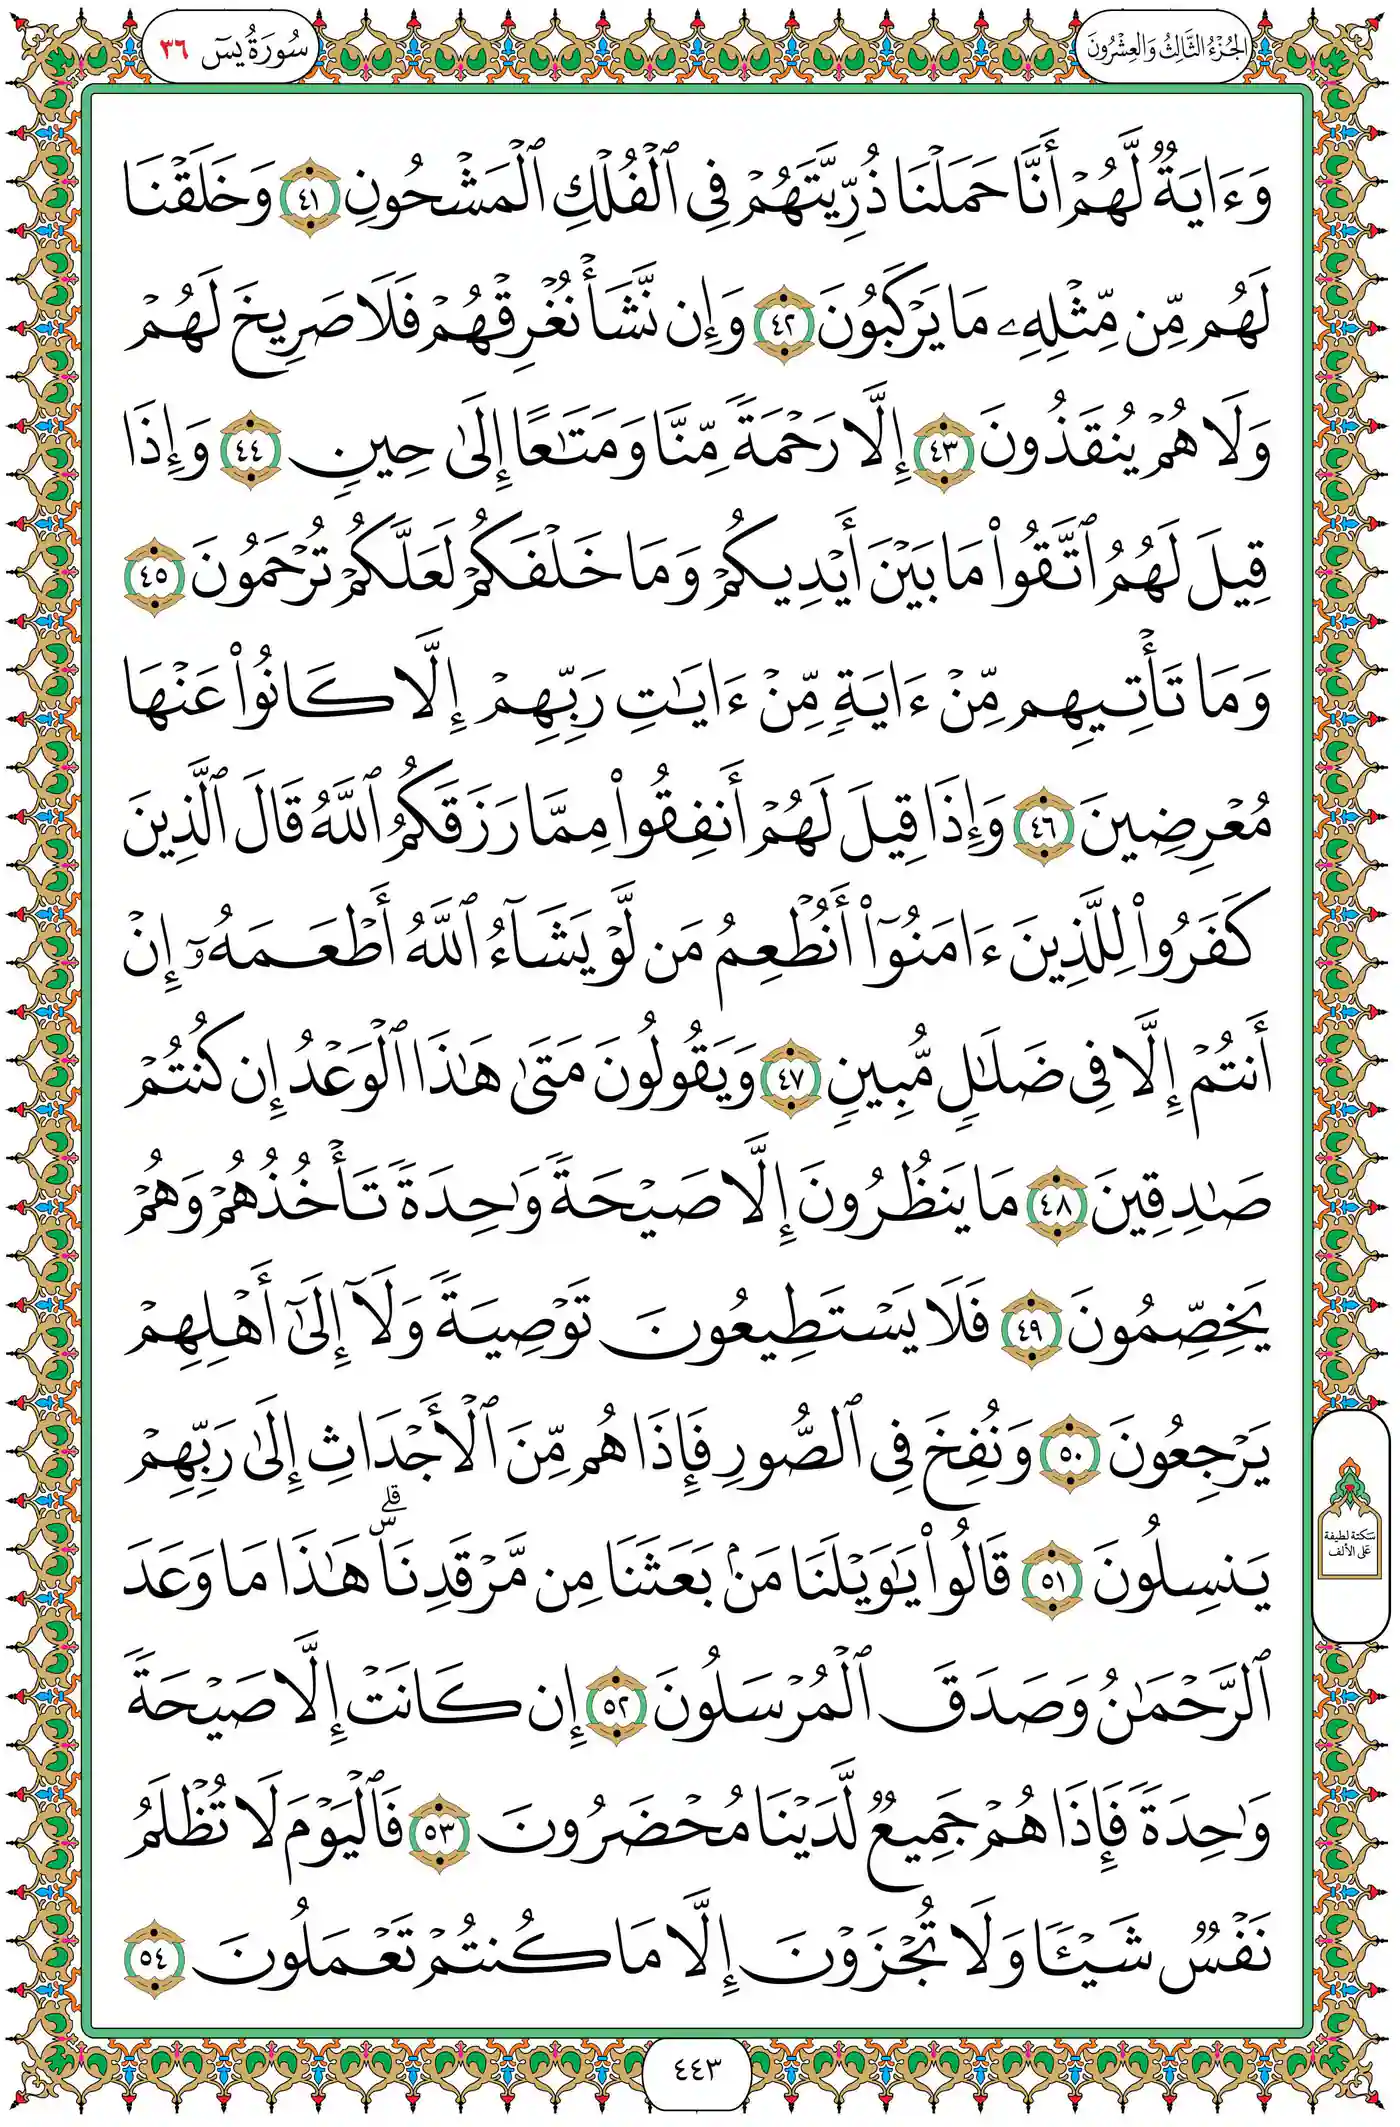 الجُزْءُ الثَّالِثُ وَالعِشْرُونَ
سُورَةُ يسٓ ٣٦
وَءَايَةٌ لَّهُمْ أَنَّا حَمَلْنَا ذُرِّيَّتَهُمْ فِي ٱلْفُلْكِ ٱلْمَشْحُونِ ٤١ وَخَلَقْنَا
لَهُم مِّن مِّثْلِهِۦ مَا يَرْكَبُونَ ٤٢ وَإِن نَّشَأْ نُغْرِقْهُمْ فَلَا صَرِيخَ لَهُمْ
وَلَا هُمْ يُنقَذُونَ ٤٣ إِلَّا رَحْمَةً مِّنَّا وَمَتَٰعًا إِلَىٰ حِينٍ ٤٤ وَإِذَا
قِيلَ لَهُمُ ٱتَّقُوا۟ مَا بَيْنَ أَيْدِيكُمْ وَمَا خَلْفَكُمْ لَعَلَّكُمْ تُرْحَمُونَ ٤٥
وَمَا تَأْتِيهِم مِّنْ ءَايَةٍ مِّنْ ءَايَٰتِ رَبِّهِمْ إِلَّا كَانُوا۟ عَنْهَا
مُعْرِضِينَ ٤٦ وَإِذَا قِيلَ لَهُمْ أَنفِقُوا۟ مِمَّا رَزَقَكُمُ ٱللَّهُ قَالَ ٱلَّذِينَ
كَفَرُوا۟ لِلَّذِينَ ءَامَنُوٓا۟ أَنُطْعِمُ مَن لَّوْ يَشَآءُ ٱللَّهُ أَطْعَمَهُۥٓ إِنْ
أَنتُمْ إِلَّا فِي ضَلَٰلٍ مُّبِينٍ ٤٧ وَيَقُولُونَ مَتَىٰ هَٰذَا ٱلْوَعْدُ إِن كُنتُمْ
صَٰدِقِينَ ٤٨ مَا يَنظُرُونَ إِلَّا صَيْحَةً وَٰحِدَةً تَأْخُذُهُمْ وَهُمْ
يَخِصِّمُونَ ٤٩ فَلَا يَسْتَطِيعُونَ تَوْصِيَةً وَلَآ إِلَىٰٓ أَهْلِهِمْ
يَرْجِعُونَ ٥٠ وَنُفِخَ فِي ٱلصُّورِ فَإِذَا هُم مِّنَ ٱلْأَجْدَاثِ إِلَىٰ رَبِّهِمْ
يَنسِلُونَ ٥١ قَالُوا۟ يَٰوَيْلَنَا مَنۢ بَعَثَنَا مِن مَّرْقَدِنَاۜۗ هَٰذَا مَا وَعَدَ
ٱلرَّحْمَٰنُ وَصَدَقَ ٱلْمُرْسَلُونَ ٥٢ إِن كَانَتْ إِلَّا صَيْحَةً
وَٰحِدَةً فَإِذَا هُمْ جَمِيعٌ لَّدَيْنَا مُحْضَرُونَ ٥٣ فَٱلْيَوْمَ لَا تُظْلَمُ
نَفْسٌ شَيْـًٔا وَلَا تُجْزَوْنَ إِلَّا مَا كُنتُمْ تَعْمَلُونَ ٥٤
سَكتة لطيفة
عَلى الألف
٤٤٣